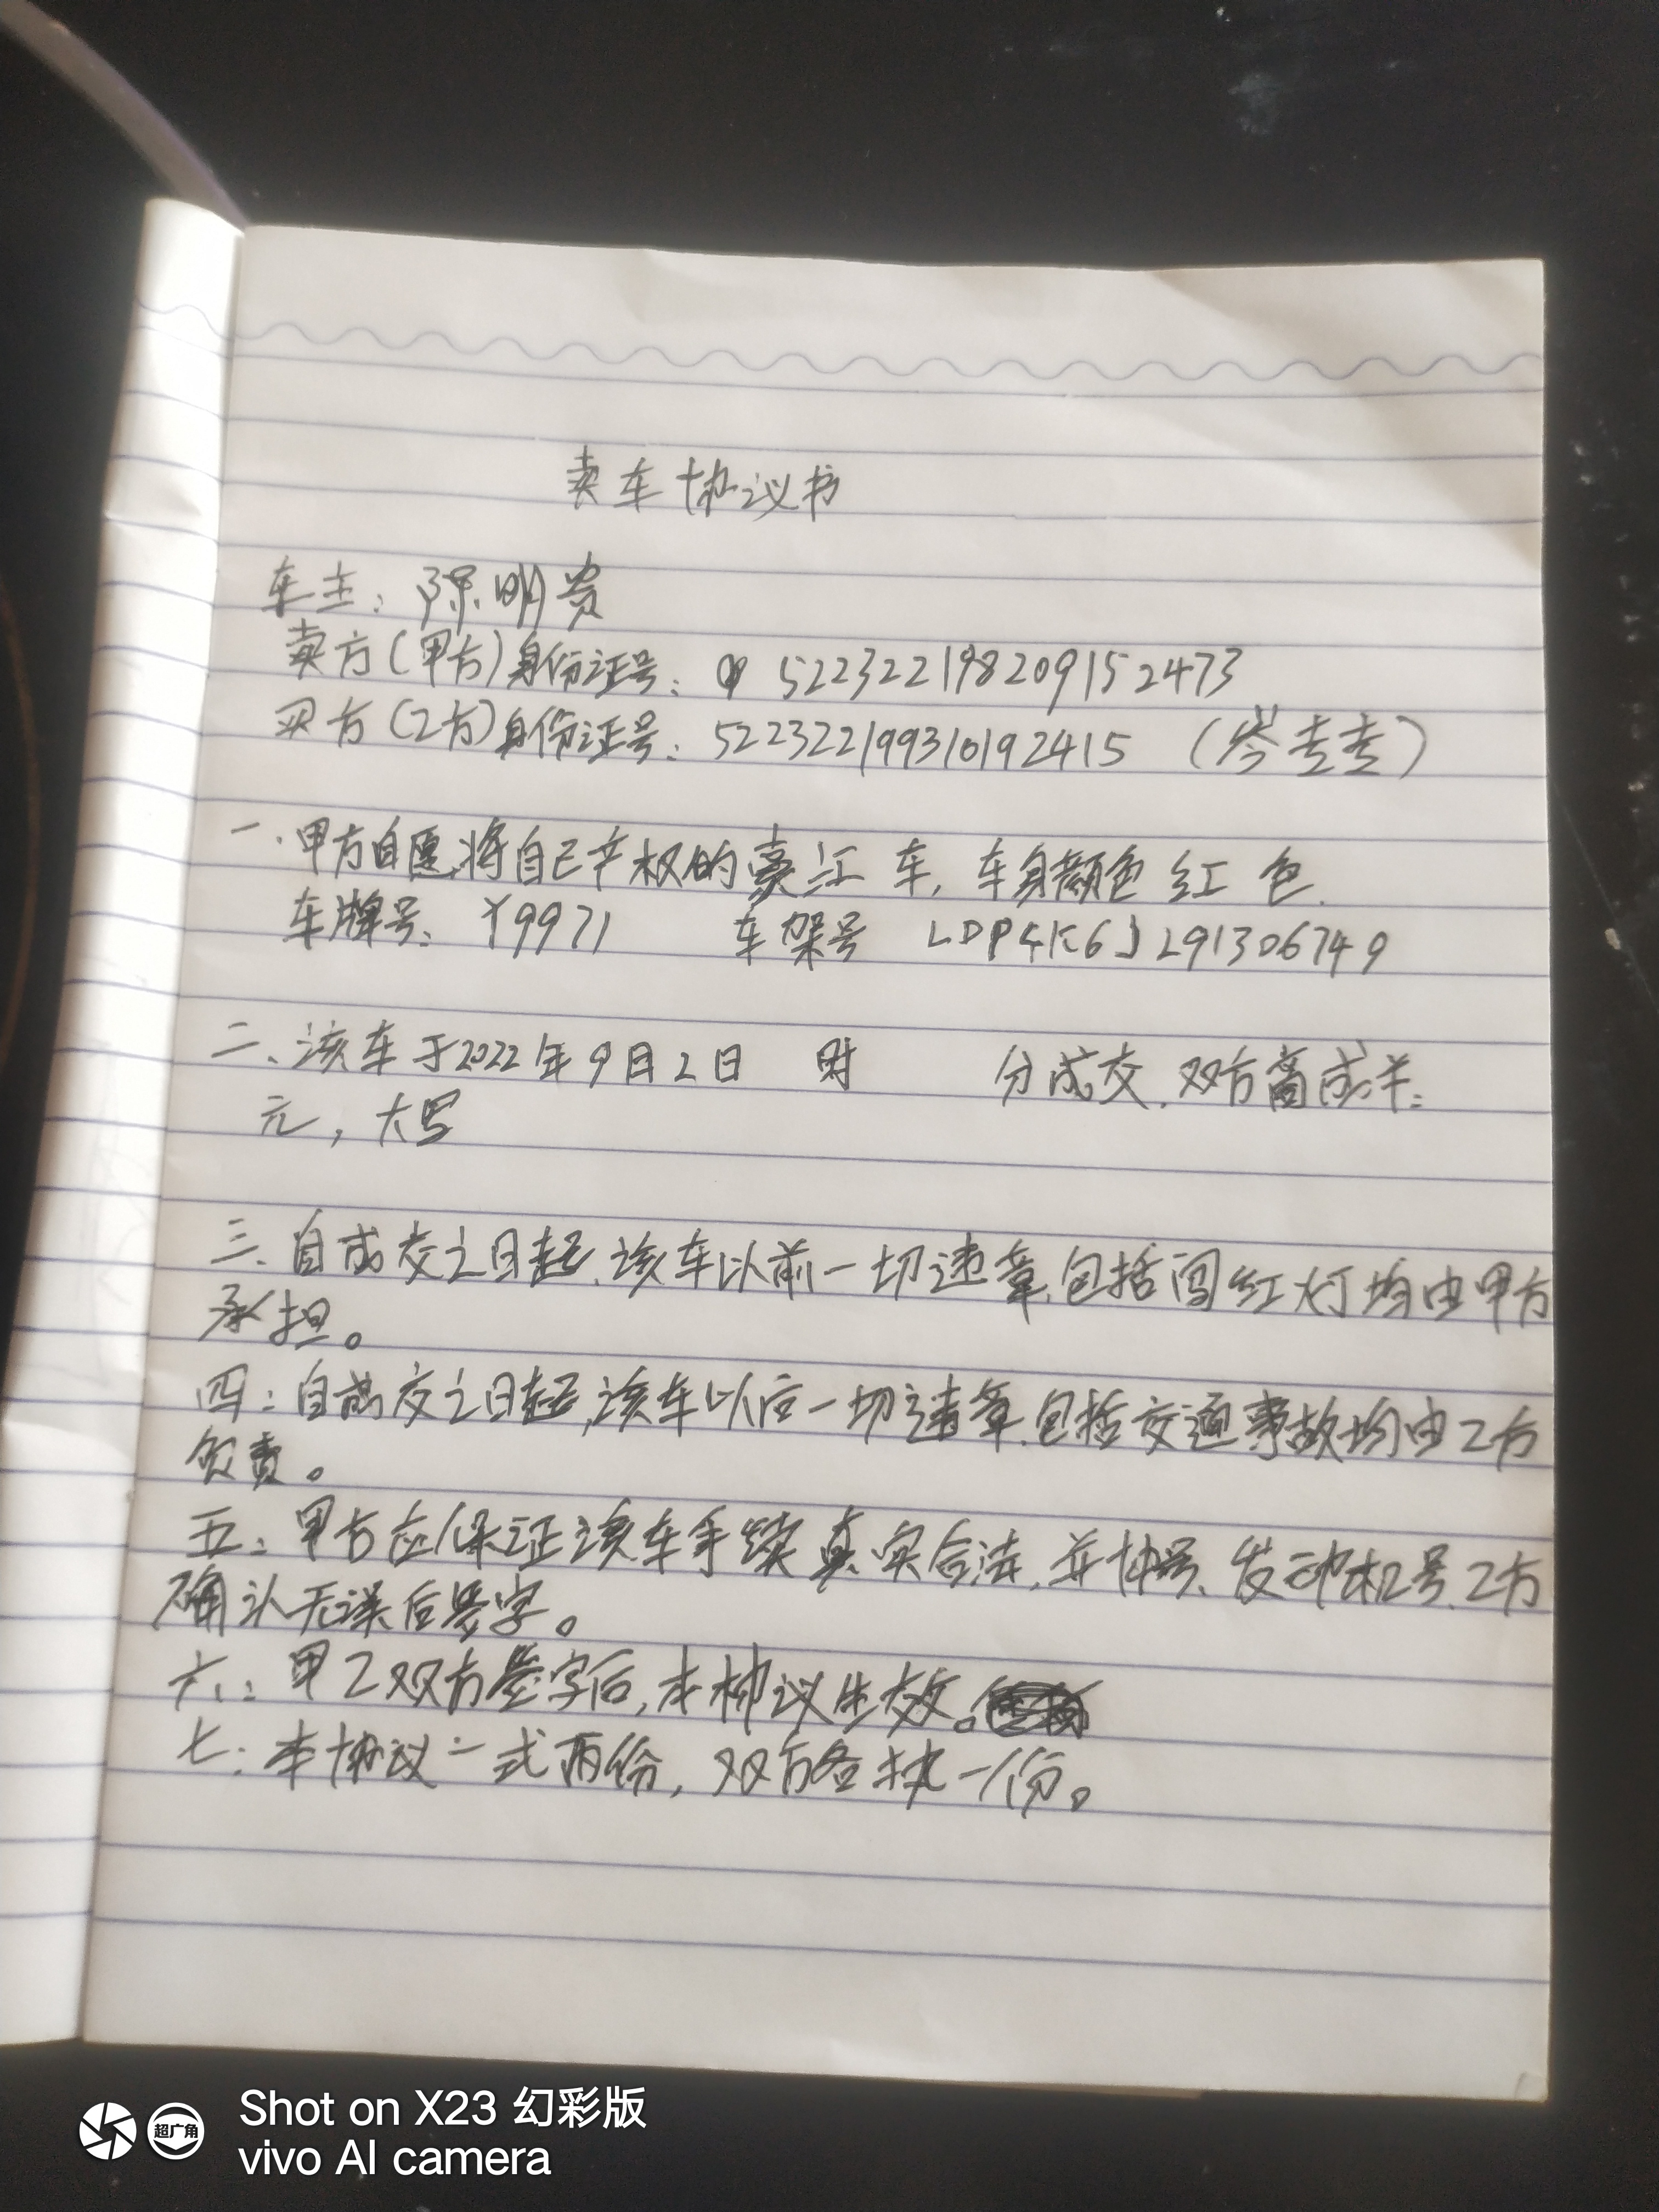 卖车协议书
车主：陈明贵
卖方(甲方)身份证号： 522322198209152473
买方(乙方)身份证号：522322199310192415 (岑
一.甲方自愿将自己产权的豪江车,车身颜色红色.
车牌号：Y9971 车架号 LDP4K6J291306749
二、该车于2022年9月2日 时 分成交.双方商成半:
元，大写
三、自成交之日起,该车以前一切违章,包括闯红灯均由甲方
承担。
四：自成交之日起,该车以后一切违章.包括交通事故均由乙方
负责。
五：甲方应保证该车手续真实合法,并 号、发动机号.乙方
确认无误后签字。
六：甲乙双方签字后,本协议生效。
七：本协议一式两份，双方各执一份。
Shot on X23 幻彩版
vivo AI camera
超广角